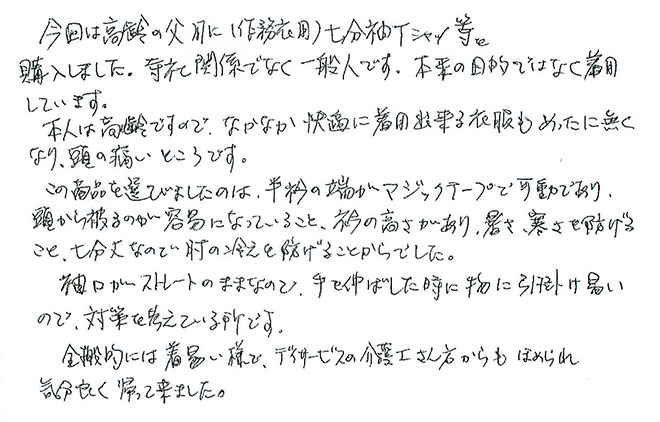 今回は高齢の父用に(作務衣用)七分袖Tシャツ等を
購入しました。寺社関係でなく一般人です。本来の目的ではなく着用
しています。
本人は高齢ですので、なかなか快適に着用出来る衣服もめったに無く
なり、頭の痛いところです。
この商品を選びましたのは、半衿の端がマジックテープで可動であり、
頭から被るのが容易になっていること、衿の高さがあり、暑さ、寒さを防げる
こと、七分丈なので肘の冷えを防げることからでした。
袖口がストレートのままなので、手を伸ばした時に物に引掛け易い
ので、対策を考えている所です。
全般的には着易い様で、デイサービスの介護士さん方からもほめられ
気分良く帰って来ました。